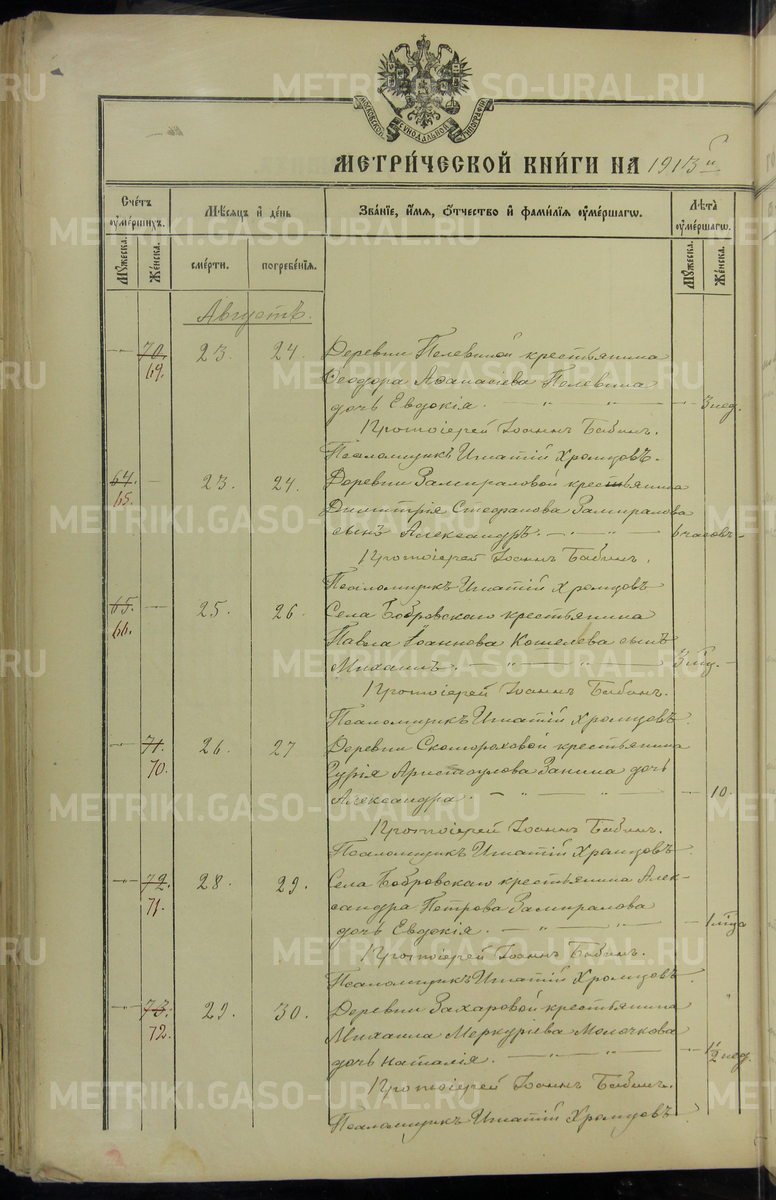 МОСКОВСКОЙ СѴНОДАЛЬНОЙ ТИПОГРАФІИ
МЕТРИ́ЧЕСКОЙ КНИ́ГИ НА 1913 й
Счётъ ѹме́ршихъ.
Мѣ́сяцъ и де́нь
Зва́нїе, и́мя, ѻ́тчество и фами́лїя ѹме́ршагѡ.
Лѣта̀ ѹме́ршагѡ.
Мѹ́жеска.
Же́нска.
сме́рти.
погребе́нїя.
Мѹ́жеска.
Же́нска.
Августъ.
— 70. 69. 23. 24. Деревни Пелевиной крестьянина
Ѳеодора Аѳанасіева Пелевина
дочь Евдокія. — " — " — — 3 нед.
Протоіерей Іоаннъ Бабинъ.
Псаломщикъ Игнатій Храмцовъ.
64. 65. — 23. 24. Деревни Замираловой крестьянина
Димитрія Стефанова Замиралова
сынъ Александръ. — " — 6 часовъ —
Протоіерей Іоаннъ Бабинъ.
Псаломщикъ Игнатій Храмцовъ
65. 66. — 25. 26. Села Бобровскаго крестьянина
Павла Іоаннова Кошелева сынъ
Михаилъ. — " — " — 3 мц. —
Протоіерей Іоаннъ Бабинъ.
Псаломщикъ Игнатій Храмцовъ.
— 71. 70. 26. 27 Деревни Скомороховой крестьянина
Гурія Аристоулова Занина дочь
Александра. — " — " — — 10.
Протоіерей Іоаннъ Бабинъ.
Псаломщикъ Игнатій Храмцовъ
— 72. 71. 28. 29. Села Бобровскаго крестьянина Алек-
сандра Петрова Замиралова
дочь Евдокія. — " — " — — 1 мца
Протоіерей Іоаннъ Бабинъ.
Псаломщикъ Игнатій Храмцовъ.
— 73. 72. 29. 30. Деревни Захаровой крестьянина
Михаила Меркурьева Молочкова
дочь Наталія. — " — " — — 1 1/2 нед.
Протоіерей Іоаннъ Бабинъ.
Псаломщикъ Игнатій Храмцовъ
METRIKI.GASO-URAL.RU